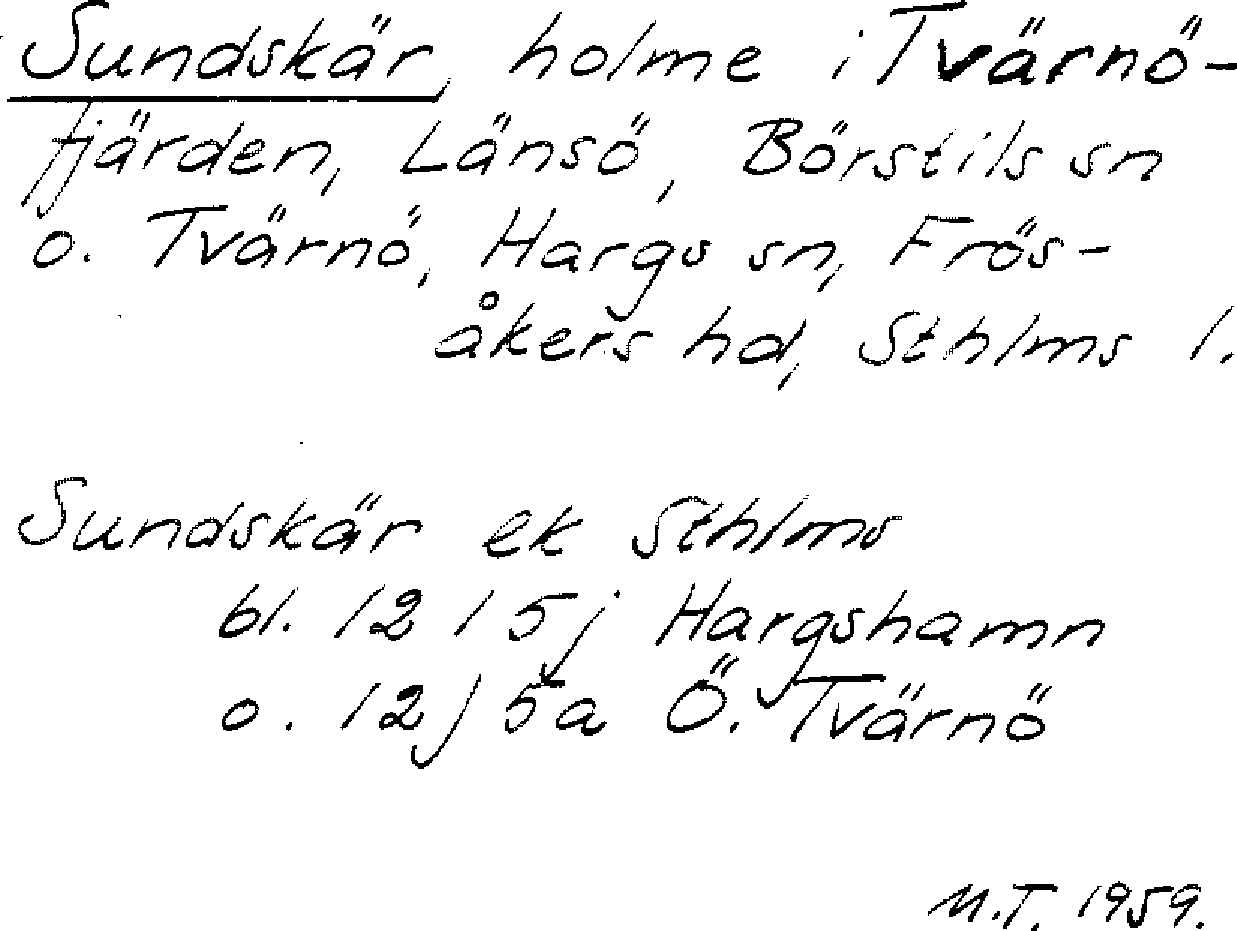 Sundskär, holme i Tvärnö-
fjärden, Länsö, Börstils sn
o. Tvärnö, Hargs sn, Frös-
åkers hd, Sthlms l.
Sundskär ek Sthlms
bl. 12 I 5j Hargshamn
o. 12J 5a Ö. Tvärnö
M.T. 1959.